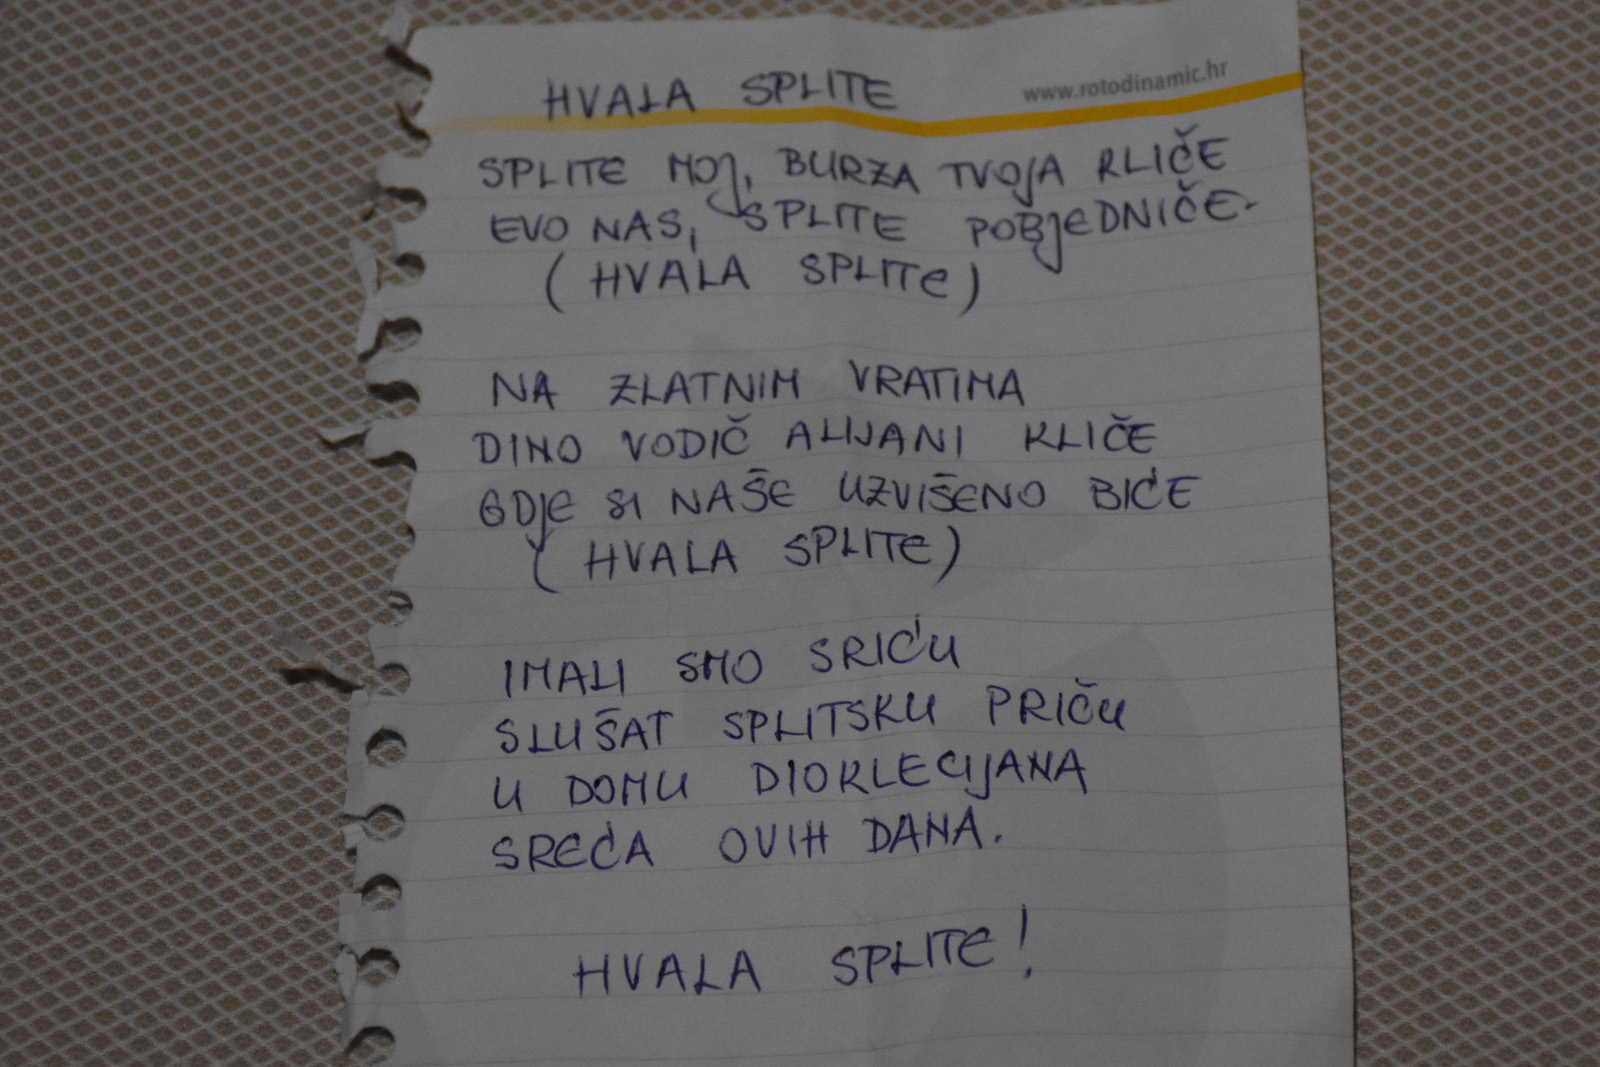 HVALA SPLITE
www.rotodinamic.hr
SPLITE MOJ, BURZA TVOJA KLIČE
EVO NAS, SPLITE POBJEDNIČE.
(HVALA SPLITE)
NA ZLATNIM VRATIMA
DINO VODIČ ALIJANI KLIČE
GDJE SI NAŠE UZVIŠENO BIĆE
(HVALA SPLITE)
IMALI SMO SRIĆU
SLUŠAT SPLITSKU PRIČU
U DOMU DIOKLECIJANA
SREĆA OVIH DANA.
HVALA SPLITE!